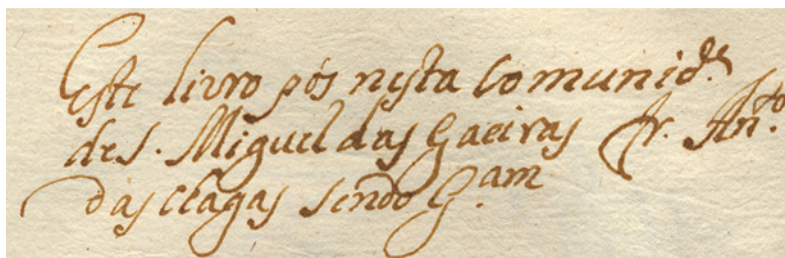 Este livro pôs nesta Comunid.e
de S. Miguel das Gaeiras Fr. Ant.o
das Chagas sendo G.am